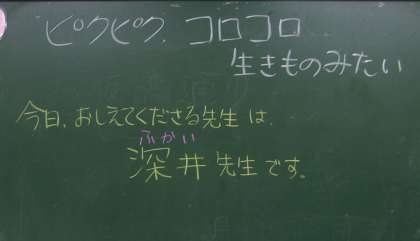 ピクピク、コロコロ
生きものみたい
今日、おしえてくださる先生は、
ふかい
深井先生です。